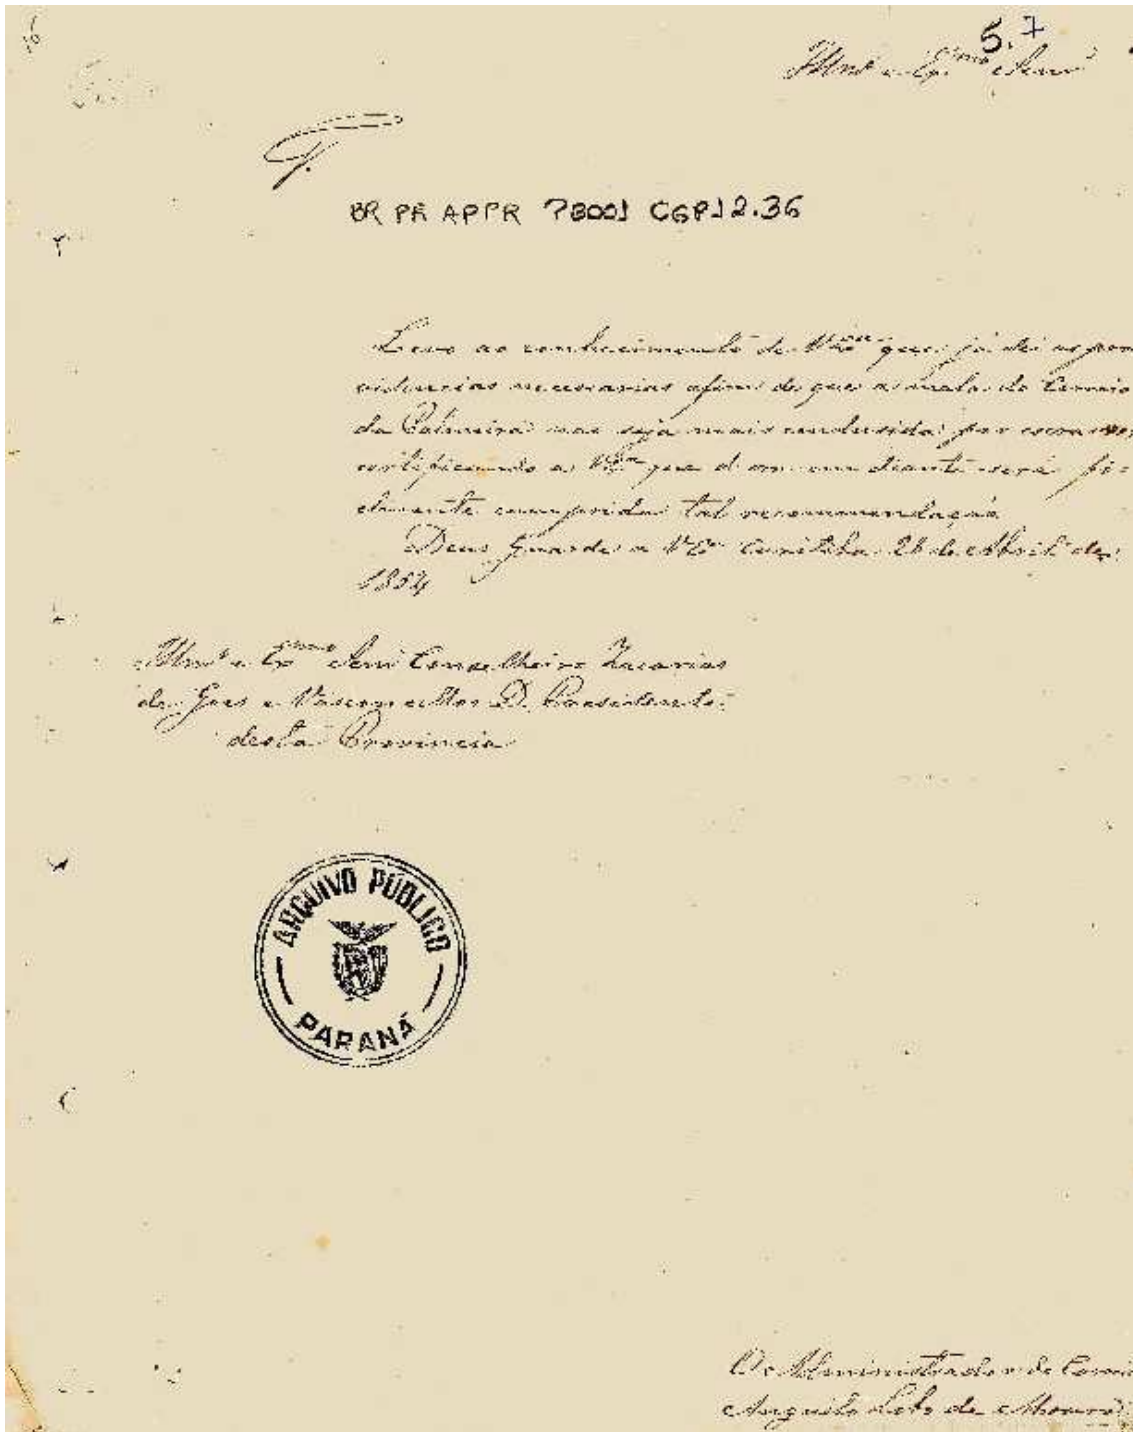 5.7
Illmo e Exmo Senr
BR PR APPR PB001 CGP12.36
Levo ao conhecimento de V Exa que já dei as pro
videncias necessarias afim de que a mala do Correio
da Palmeira nao seja mais condusida por escravos,
certificando a V Exa que d'ora em diante será fi=
elmente cumprida tal recommendação
Deus Guarde a V Ea Curitiba 28 de Abril de
1854
Illmo e Exmo Senr Conselheiro Zacarias
de Goes e Vasconcellos D. Presidente
desta Provincia
ARQUIVO PÚBLICO
PARANÁ
O Administrador do Correio
Augusto Lobo de Moura